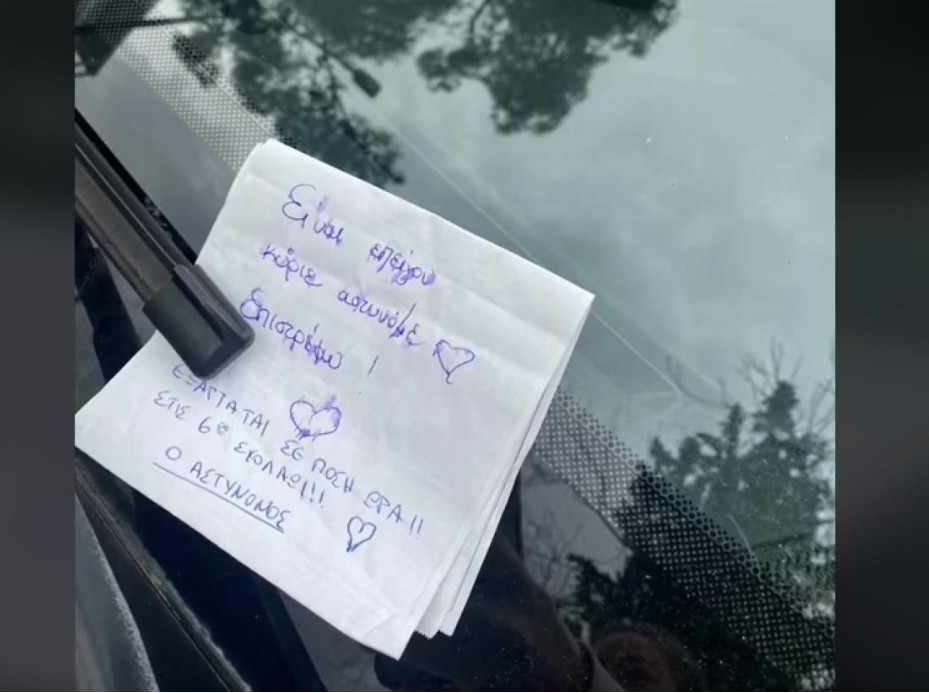 Είναι επείγον
κύριε αστυνόμε ♡
Επιστρέφω !
ΕΞΑΡΤΑΤΑΙ ΣΕ ΠΟΣΗ ΩΡΑ!!
ΣΤΙΣ 6 ΣΧΟΛΑΩ!!!
Ο ΑΣΤΥΝΟΜΟΣ